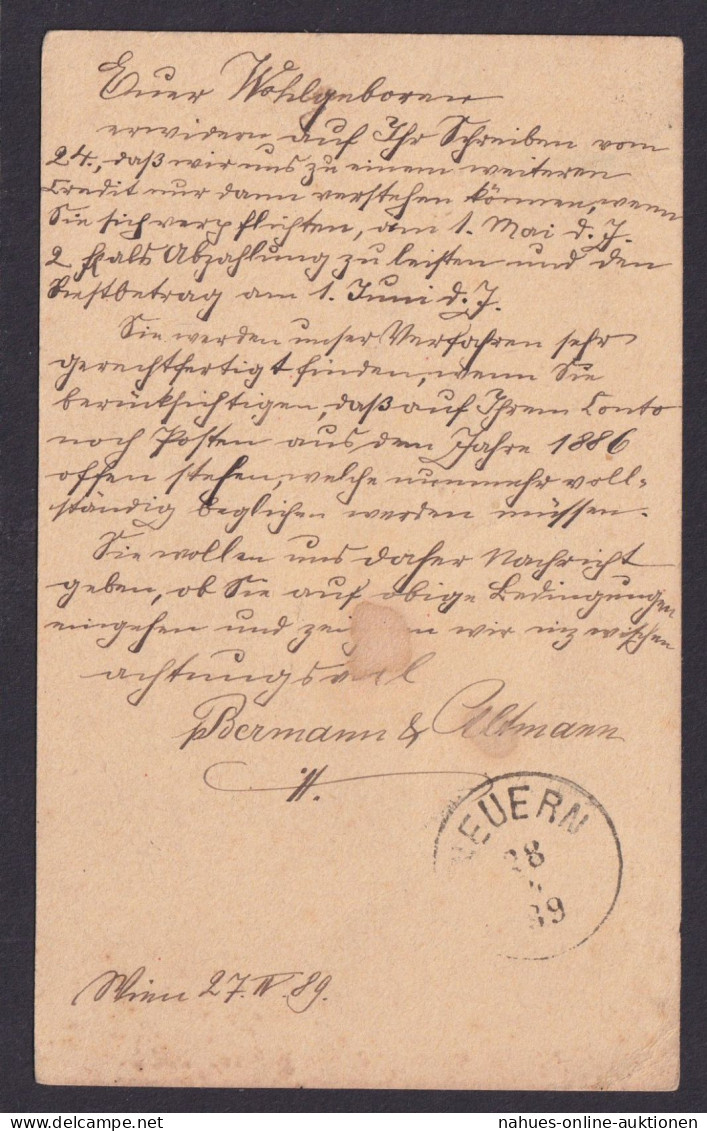 Euer Wohlgeboren
erwidern auf Ihr Schreiben vom
24., daß wir uns zu einem weiteren
Credit nur dann verstehen können, wenn
Sie sich verpflichten, am 1. Mai d. J.
2 fl als Abzahlung zu leisten und den
Restbetrag am 1. Juni d. J.
Sie werden unser Verfahren sehr
gerechtfertigt finden, wenn Sie
berücksichtigen, daß auf Ihrem Conto
noch Posten aus dem Jahre 1886
offen stehen, welche nunmehr voll-
ständig beglichen werden müssen.
Sie wollen uns daher Nachricht
geben, ob Sie auf obige Bedingungen
eingehen und zeichnen wir inzwischen
achtungsvoll
Bermann & Altmann
NEUERN
28
89
Wien 27. IV. 89.
nahues-online-auktionen